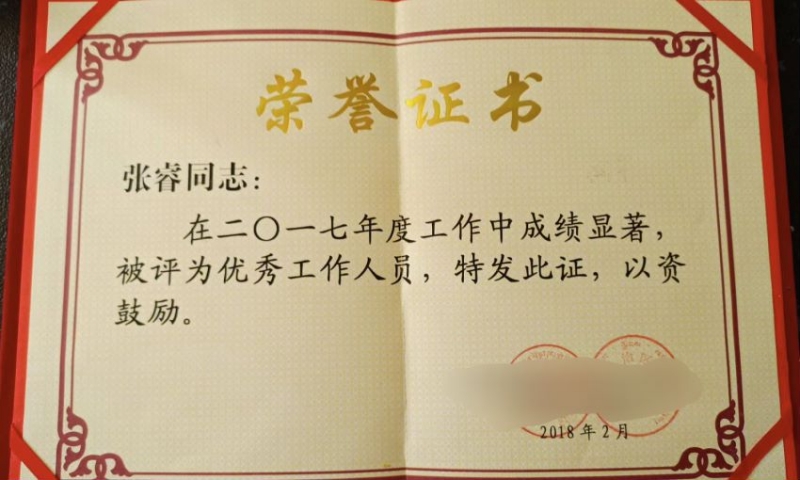 荣誉证书
张睿同志：
在二〇一七年度工作中成绩显著，
被评为优秀工作人员，特发此证，以资
鼓励。
2018年2月